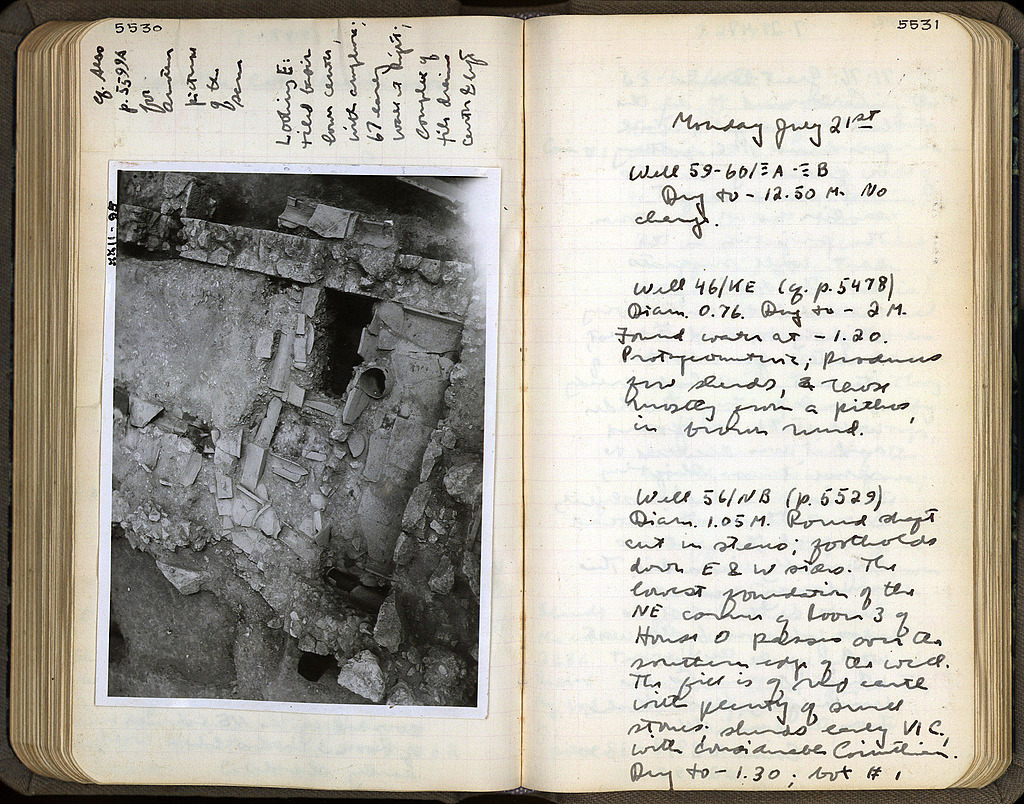 5530
cf. also
p. 5599A
for
another
picture
of the
same
Looking E:
tiled basin
lower center,
with amphora;
67 and
water at right;
complex of
tile drains
center & left
XXII-98
5531
Monday July 21st
Well 59-60/ΞA-ΞB
Dug to -12.50 M. No
change.
Well 46/KE (cf. p. 5478)
Diam. 0.76. Dug to - 2 M.
Found water at -1.20.
Protogeometric; produces
few sherds, & those
mostly from a pithos,
in brown mud.
Well 56/NB (p. 5529)
Diam. 1.05 M. Round shaft
cut in stereo; footholds
down E & W sides. The
lowest foundation of the
NE corner of Room 3 of
House O passes over the
southern edge of the well.
The fill is of red earth
with plenty of small
stones; sherds early VI C,
with considerable Corinthian.
Dug to -1.30; bot # 1